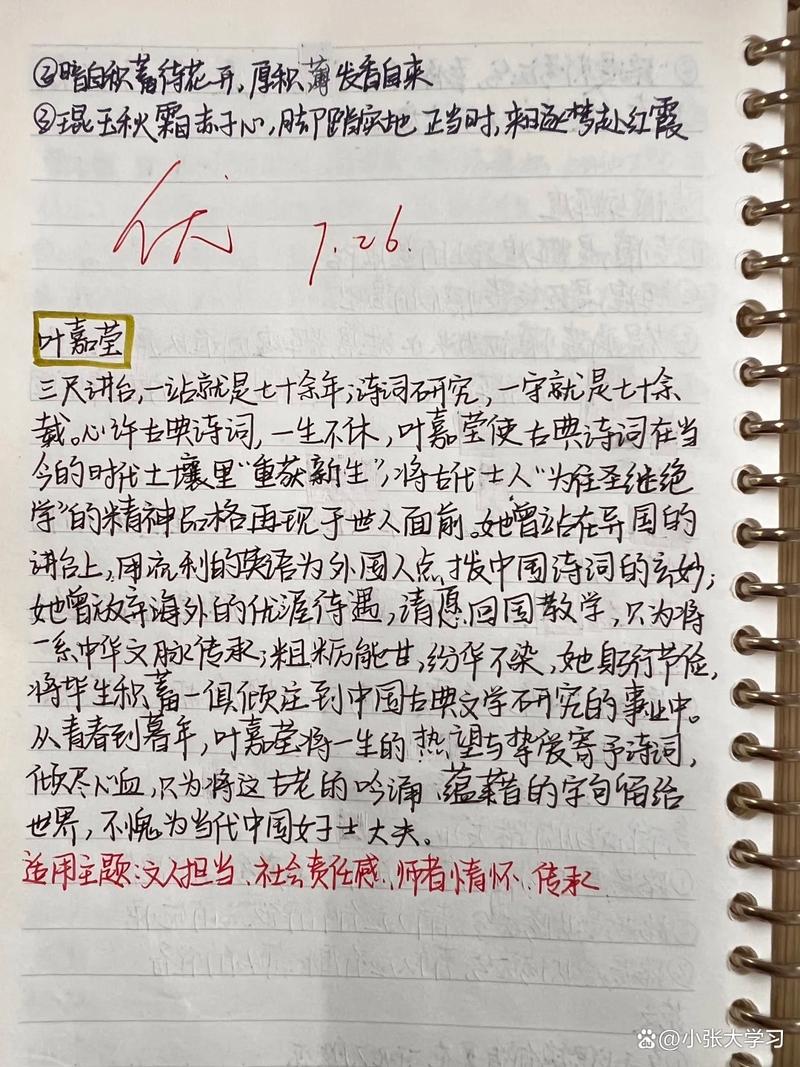 ②暗自积蓄待花开,厚积薄发香自来
③琨玉秋霜赤子心,脚踏实地正当时,来日逐梦赴红霞
优 7.26.
叶嘉莹
三尺讲台,一站就是七十余年;诗词研究,一守就是七十余
载。心许古典诗词,一生不休,叶嘉莹使古典诗词在当
今的时代土壤里“重获新生”,将古代士人“为往圣继绝
学”的精神品格再现于世人面前。她曾站在异国的
讲台上,用流利的英语为外国人点拨中国诗词的玄妙;
她曾放弃海外的优渥待遇,请愿回国教学,只为将
一系中华文脉传承;粗粝能甘,纷华不染,她躬行节俭,
将毕生积蓄一俱倾注到中国古典文学研究的事业中。
从青春到暮年,叶嘉莹将一生的热望与挚爱寄予诗词,
倾尽心血,只为将这古老的吟诵、蕴藉的字句留给
世界,不愧为当代中国女子士大夫。
适用主题:文人担当、社会责任感、师者情怀、传承
@小张大学习